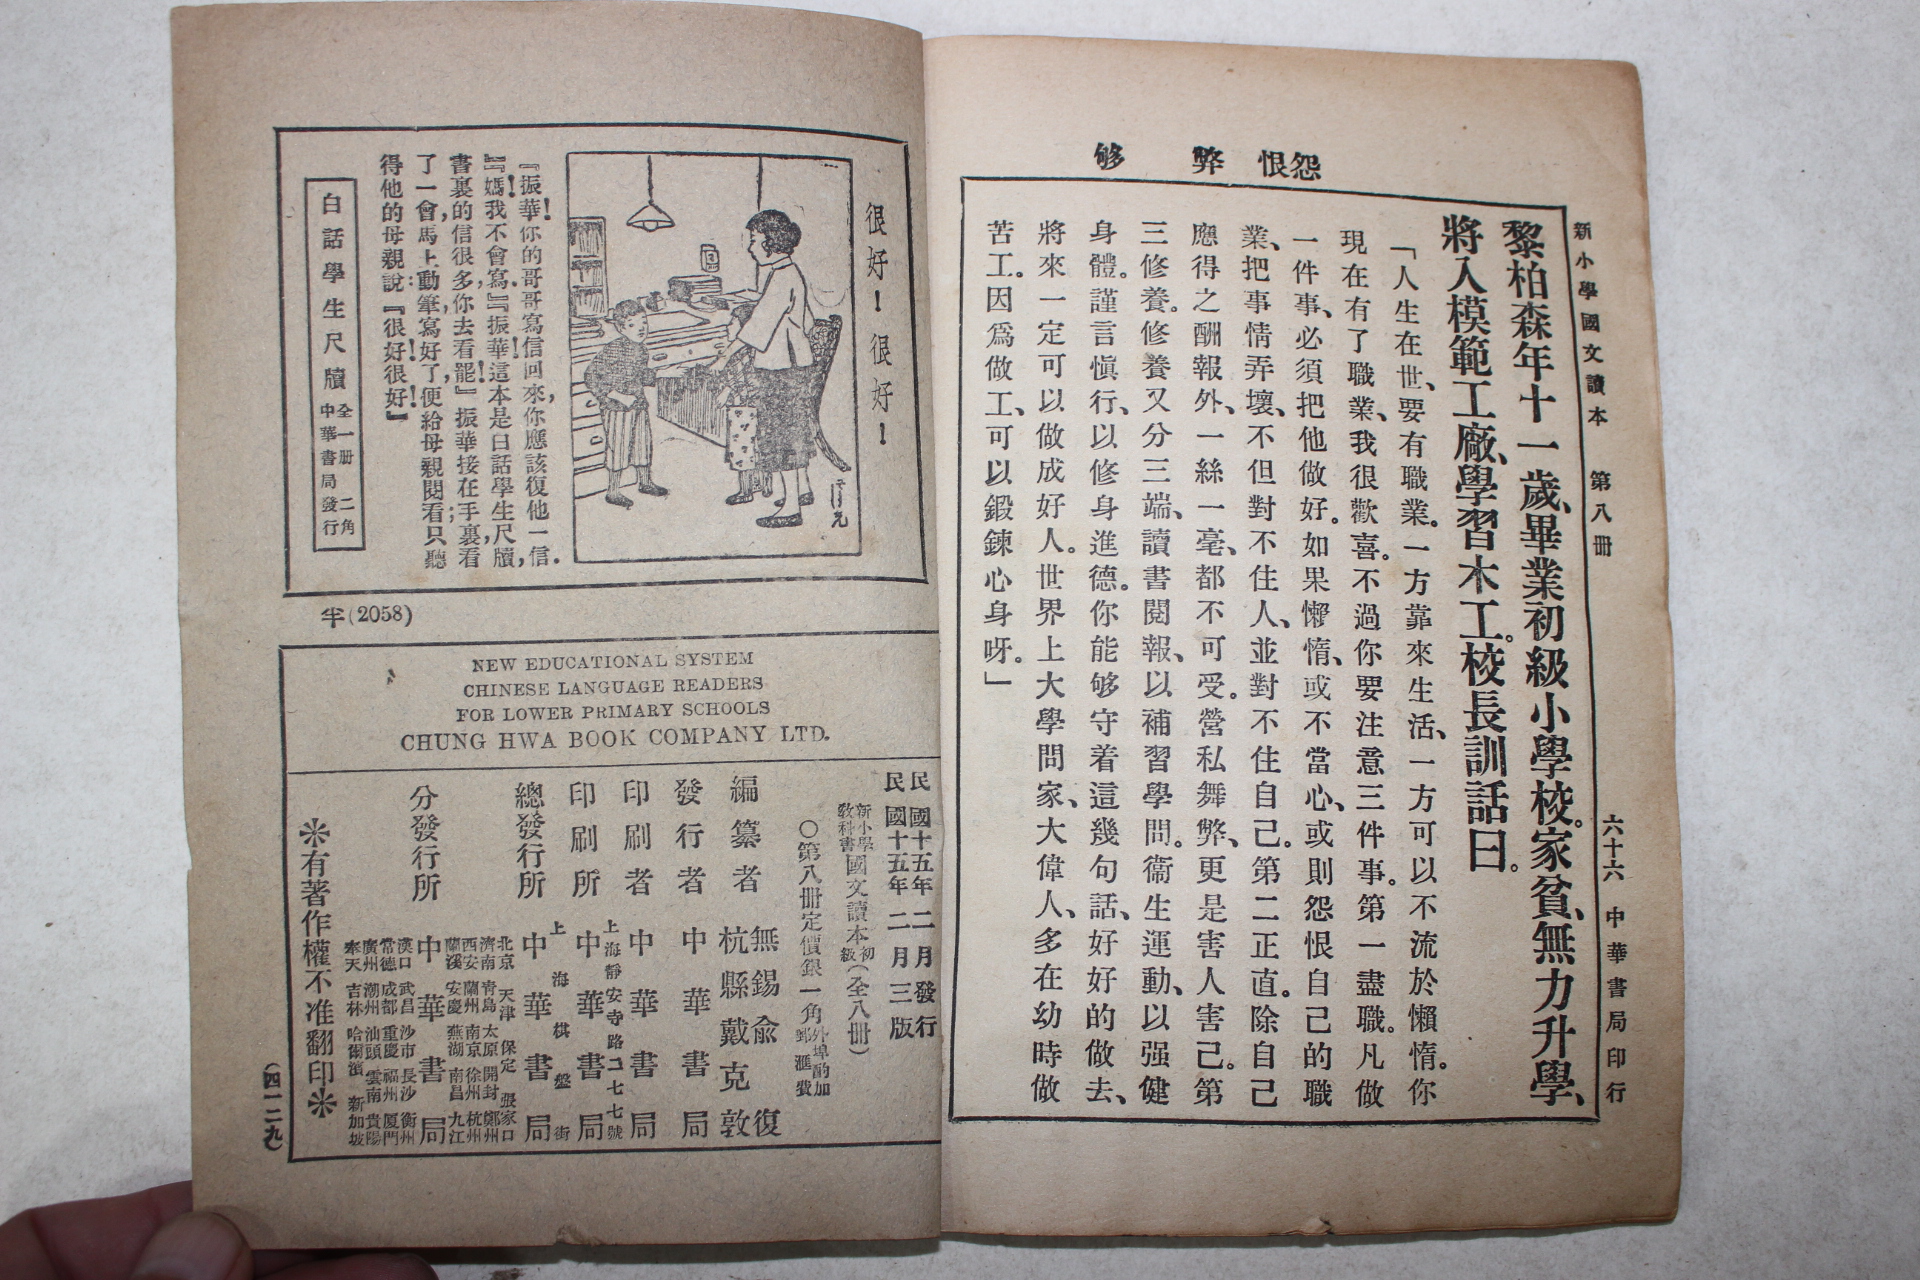 新小學國文讀本 第八冊 六十六 中華書局印行
怨恨 弊 够
黎柏森年十一歲、畢業初級小學校。家貧、無力升學、
將入模範工廠、學習木工。校長訓話曰。
「人生在世、要有職業。一方靠來生活、一方可以不流於懶惰。你
現在有了職業、我很歡喜。不過你要注意三件事。第一盡職。凡做
一件事、必須把他做好。如果懶惰、或不當心、或則怨恨自己的職
業、把事情弄壞、不但對不住人、並對不住自己。第二正直。除自己
應得之酬報外、一絲一毫、都不可受。營私舞弊、更是害人害己。第
三修養。修養又分三端、讀書閱報、以補習學問。衞生運動、以强健
身體。謹言愼行、以修身進德。你能够守着這幾句話、好好的做去、
將來一定可以做成好人。世界上大學問家、大偉人、多在幼時做
苦工。因爲做工、可以鍛鍊心身呀。」
很好！很好！
『振華！你的哥哥寫信回來，你應該復他一信.
『『媽！我不會寫.』『振華！這本是白話學生尺牘，
書裏的信很多，你去看罷！』振華接在手裏看
了一會，馬上動筆，寫好了，便給母親閱看；只聽
得他的母親說：『很好！很好！』
白話學生尺牘 全一册 二角
中華書局發行
半(2058)
NEW EDUCATIONAL SYSTEM
CHINESE LANGUAGE READERS
FOR LOWER PRIMARY SCHOOLS
CHUNG HWA BOOK COMPANY LTD.
民國十五年二月發行
民國十五年二月三版
新小學教科書國文讀本初級(全八冊)
○第八冊定價銀一角
外埠酌加郵滙費
編纂者 無錫俞復
杭縣戴克敦
發行者 中華書局
印刷者 中華書局
上海靜安寺路二七七號
印刷所 中華書局
上海棋盤街
總發行所 中華書局
北京 天津 保定 張家口
濟南 青島 太原 開封 鄭州
西安 蘭州 南京 徐州 杭州
蘭溪 安慶 蕪湖 南昌 九江
分發行所 中華書局
漢口 武昌 沙市 長沙 衡州
常德 成都 重慶 福州 厦門
廣州 潮州 汕頭 雲南 貴陽
奉天 吉林 哈爾濱 新加坡
※有著作權不准翻印※
(四一二九)